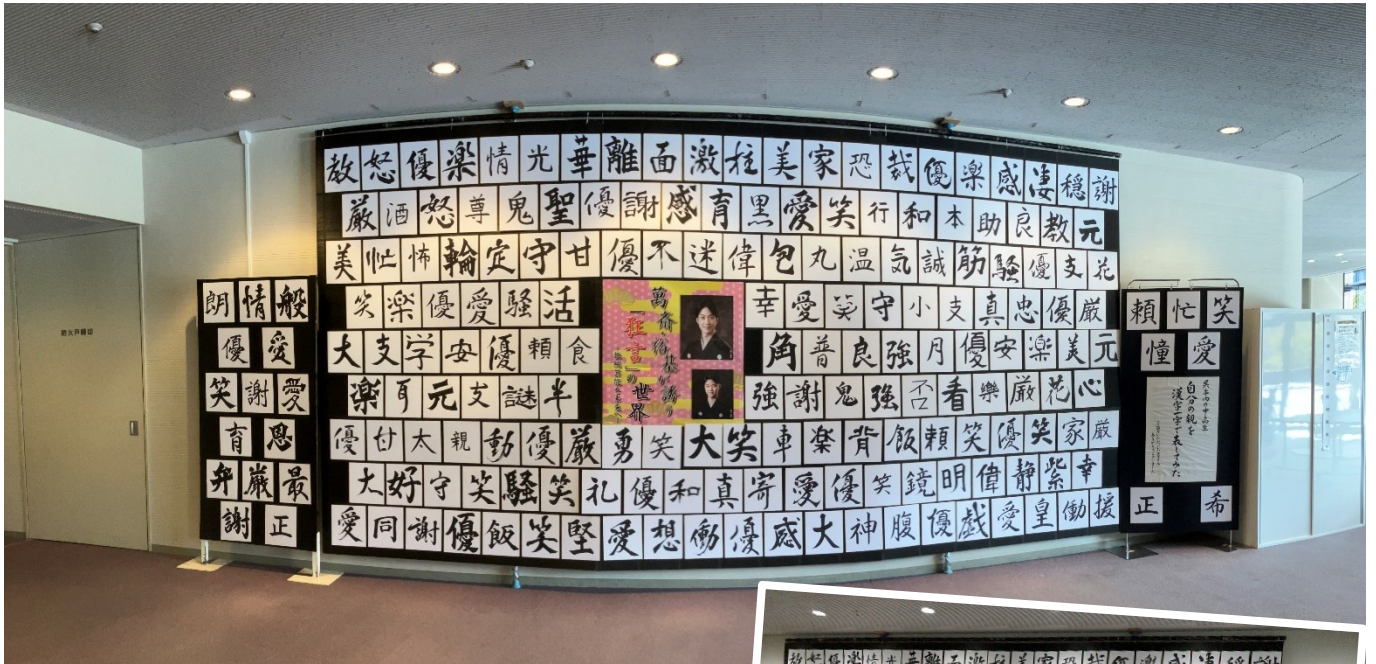 防火戸開口
朗情般
優愛
笑謝愛
育恩
弁厳最
謝正
教怒優楽情光華離面激柱美家恐裁優楽感凄穏謝
厳酒怒尊鬼聖優謝感育黒愛笑行和本助良教元
美忙怖輪定守甘優不迷偉包丸温気誠筋騒優支花
笑楽優愛騒活
幸愛笑守小支真忠優厳
大支学安優頼食
角普良強月優安楽美元
楽耳元支謎半
強謝鬼強否看樂厳花心
優甘太親動優厳勇笑大笑車楽背飯頼笑優笑家厳
大好守笑騒笑礼優和真寄愛優笑鏡明偉静紫幸
愛同謝優飯笑堅愛想働優感大神腹優戯愛皇働援
萬斎・裕基が誘う
『狂言』の世界
頼忙笑
憧愛
自分の親を
漢字一字で表してみた
正希
教怒優楽情光華離面激柱美家恐裁優楽感凄穏謝